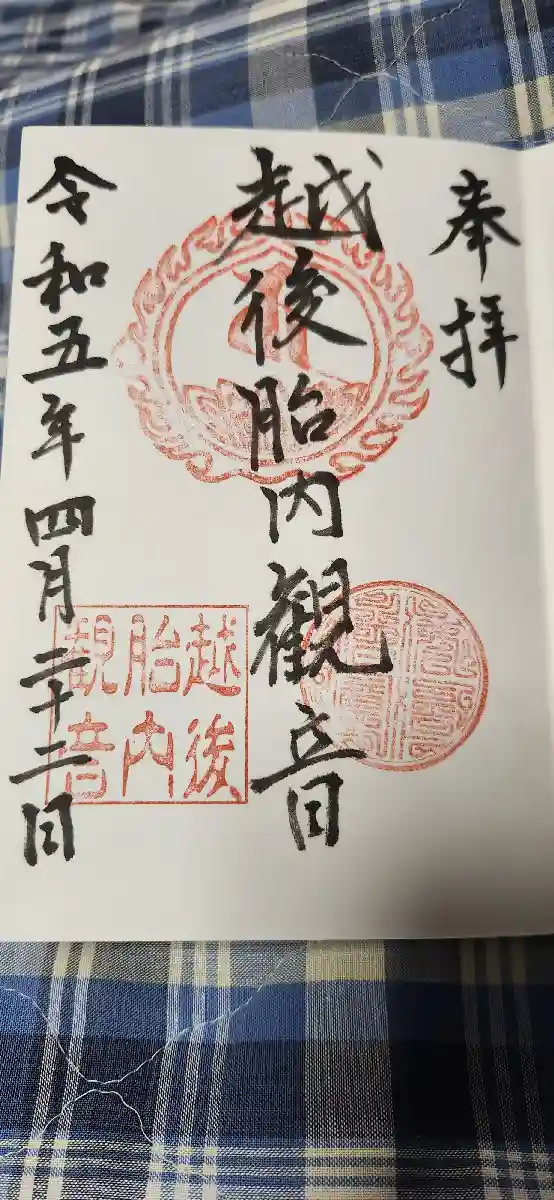 奉拝
越後胎内観音
令和五年四月二十二日
越後
胎内
観音